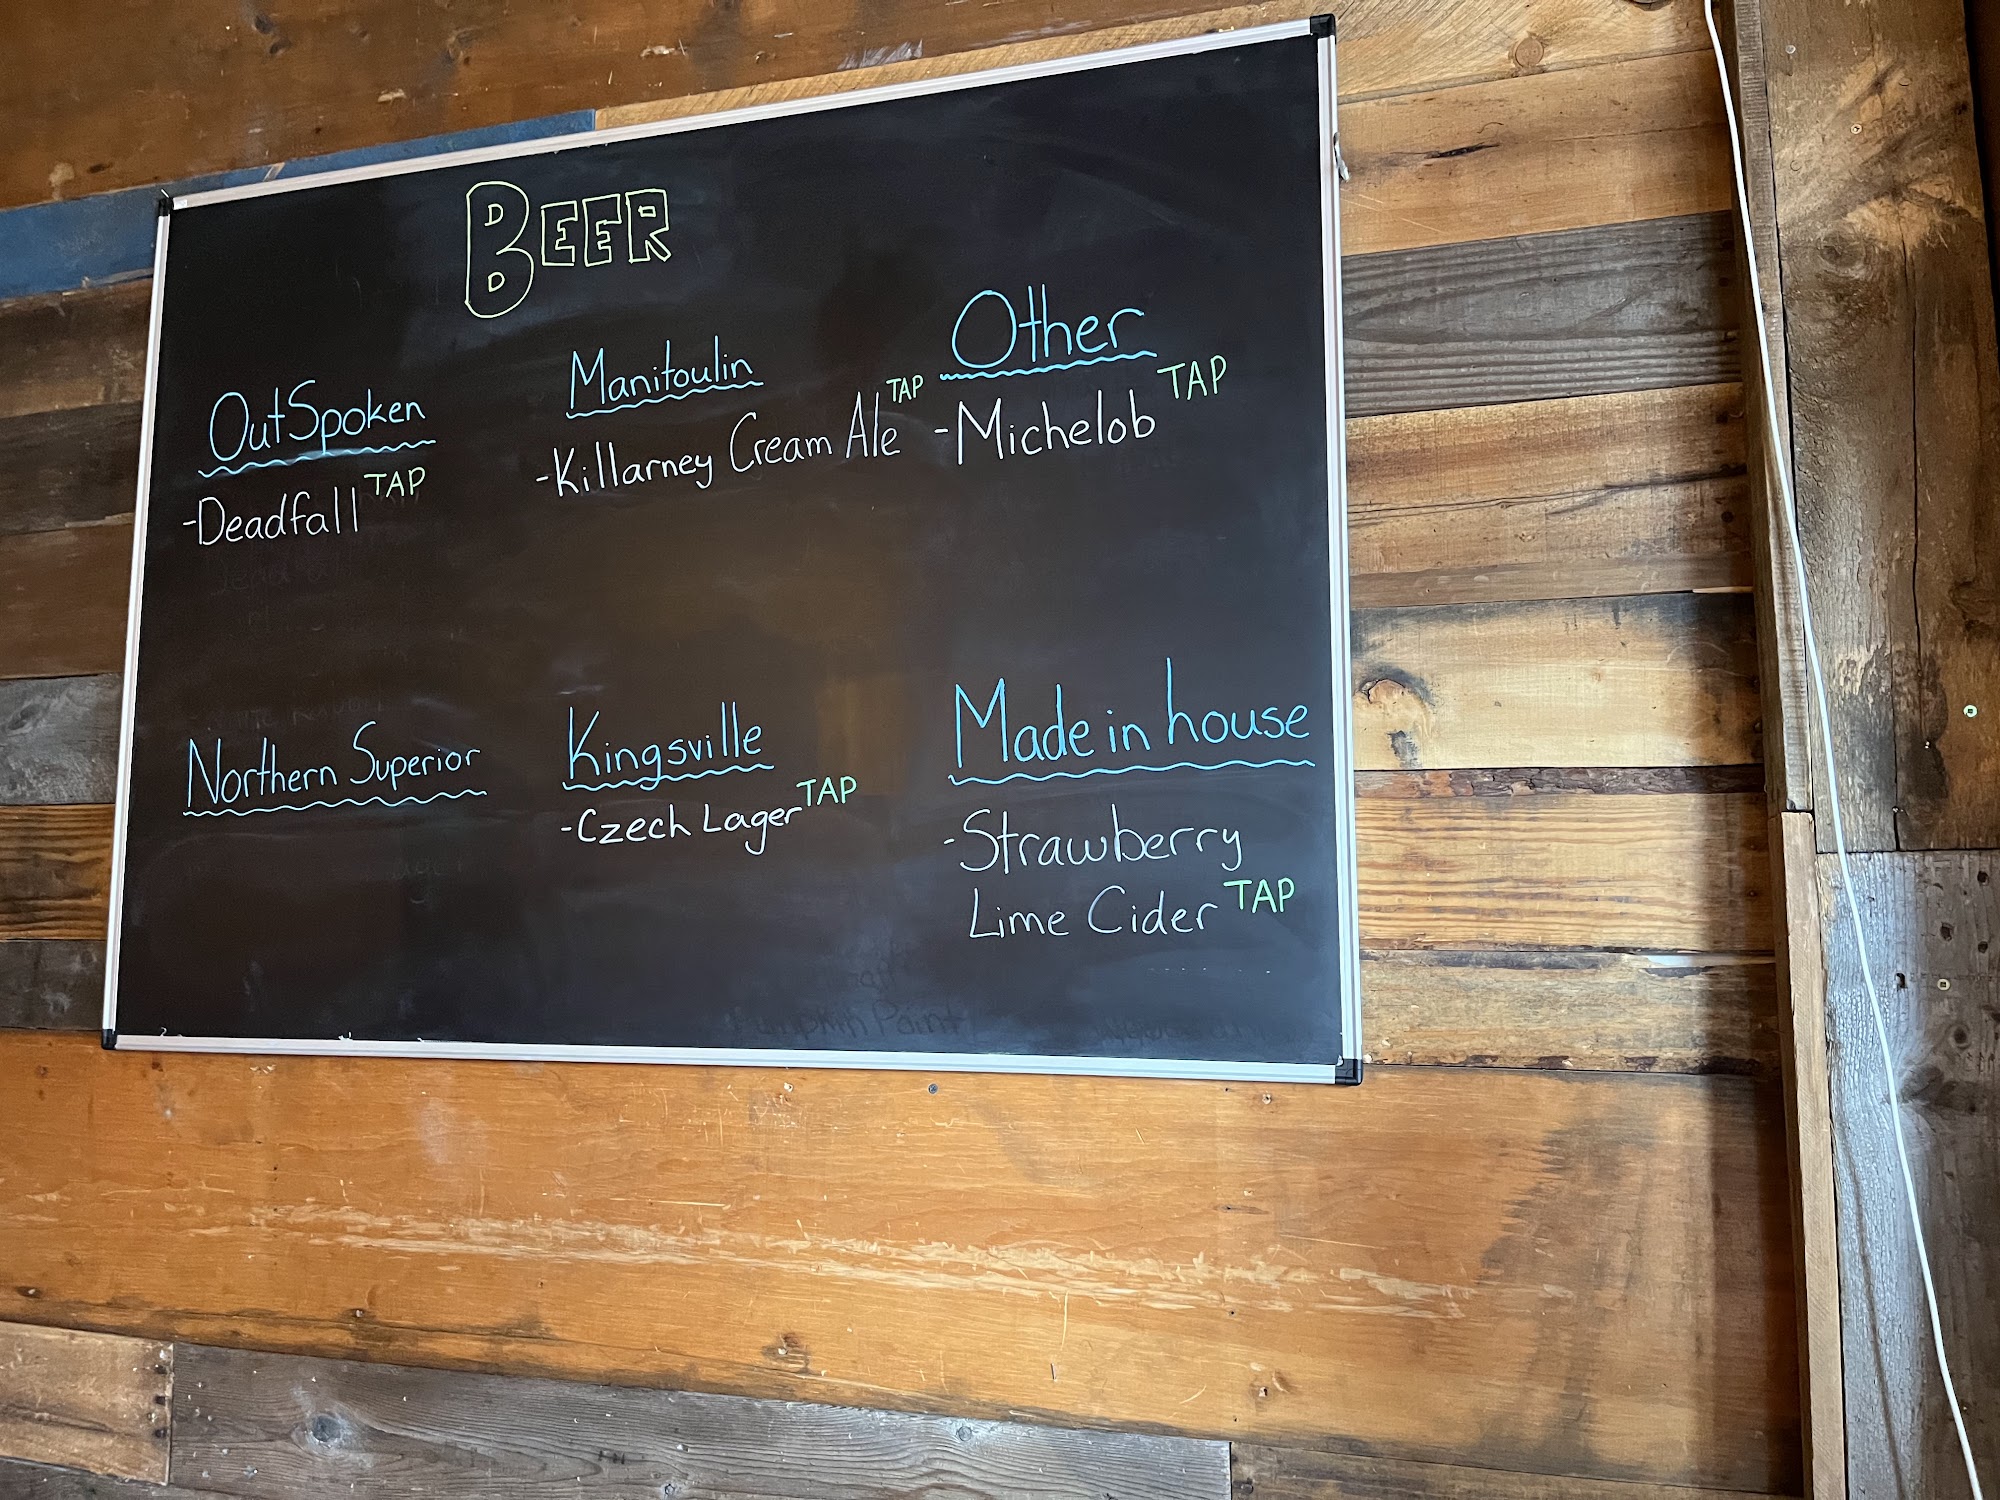 BEER
OutSpoken
-Deadfall TAP
Manitoulin
-Killarney Cream Ale TAP
Other
-Michelob TAP
Northern Superior
Kingsville
-Czech Lager TAP
Made in house
-Strawberry
Lime Cider TAP